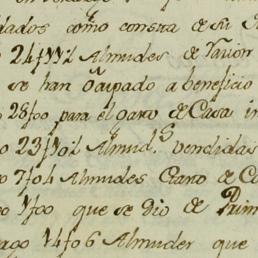 dados como consta de su
24f11½ Almudes de
se han ocupado a beneficio
28f00 para el gasto de Casa
23f10½ Almud.s vendidas
7f04 Almudes Gasto de
1f00 que se dio de Prim
14f06 Almudes que